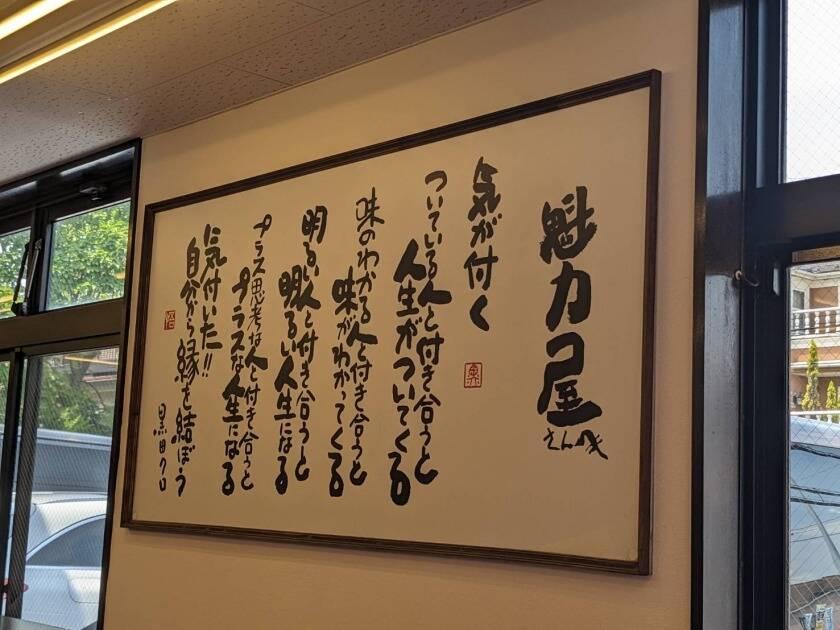 魁力屋
さん江
気が付く
ついている人と付き合うと
人生がついてくる
味のわかる人と付き合うと
味がわかってくる
明るい人と付き合うと
明るい人生になる
プラス思考な人と付き合うと
プラスな人生になる
気付いた!!
自分から縁を結ぼう
黒田クロ